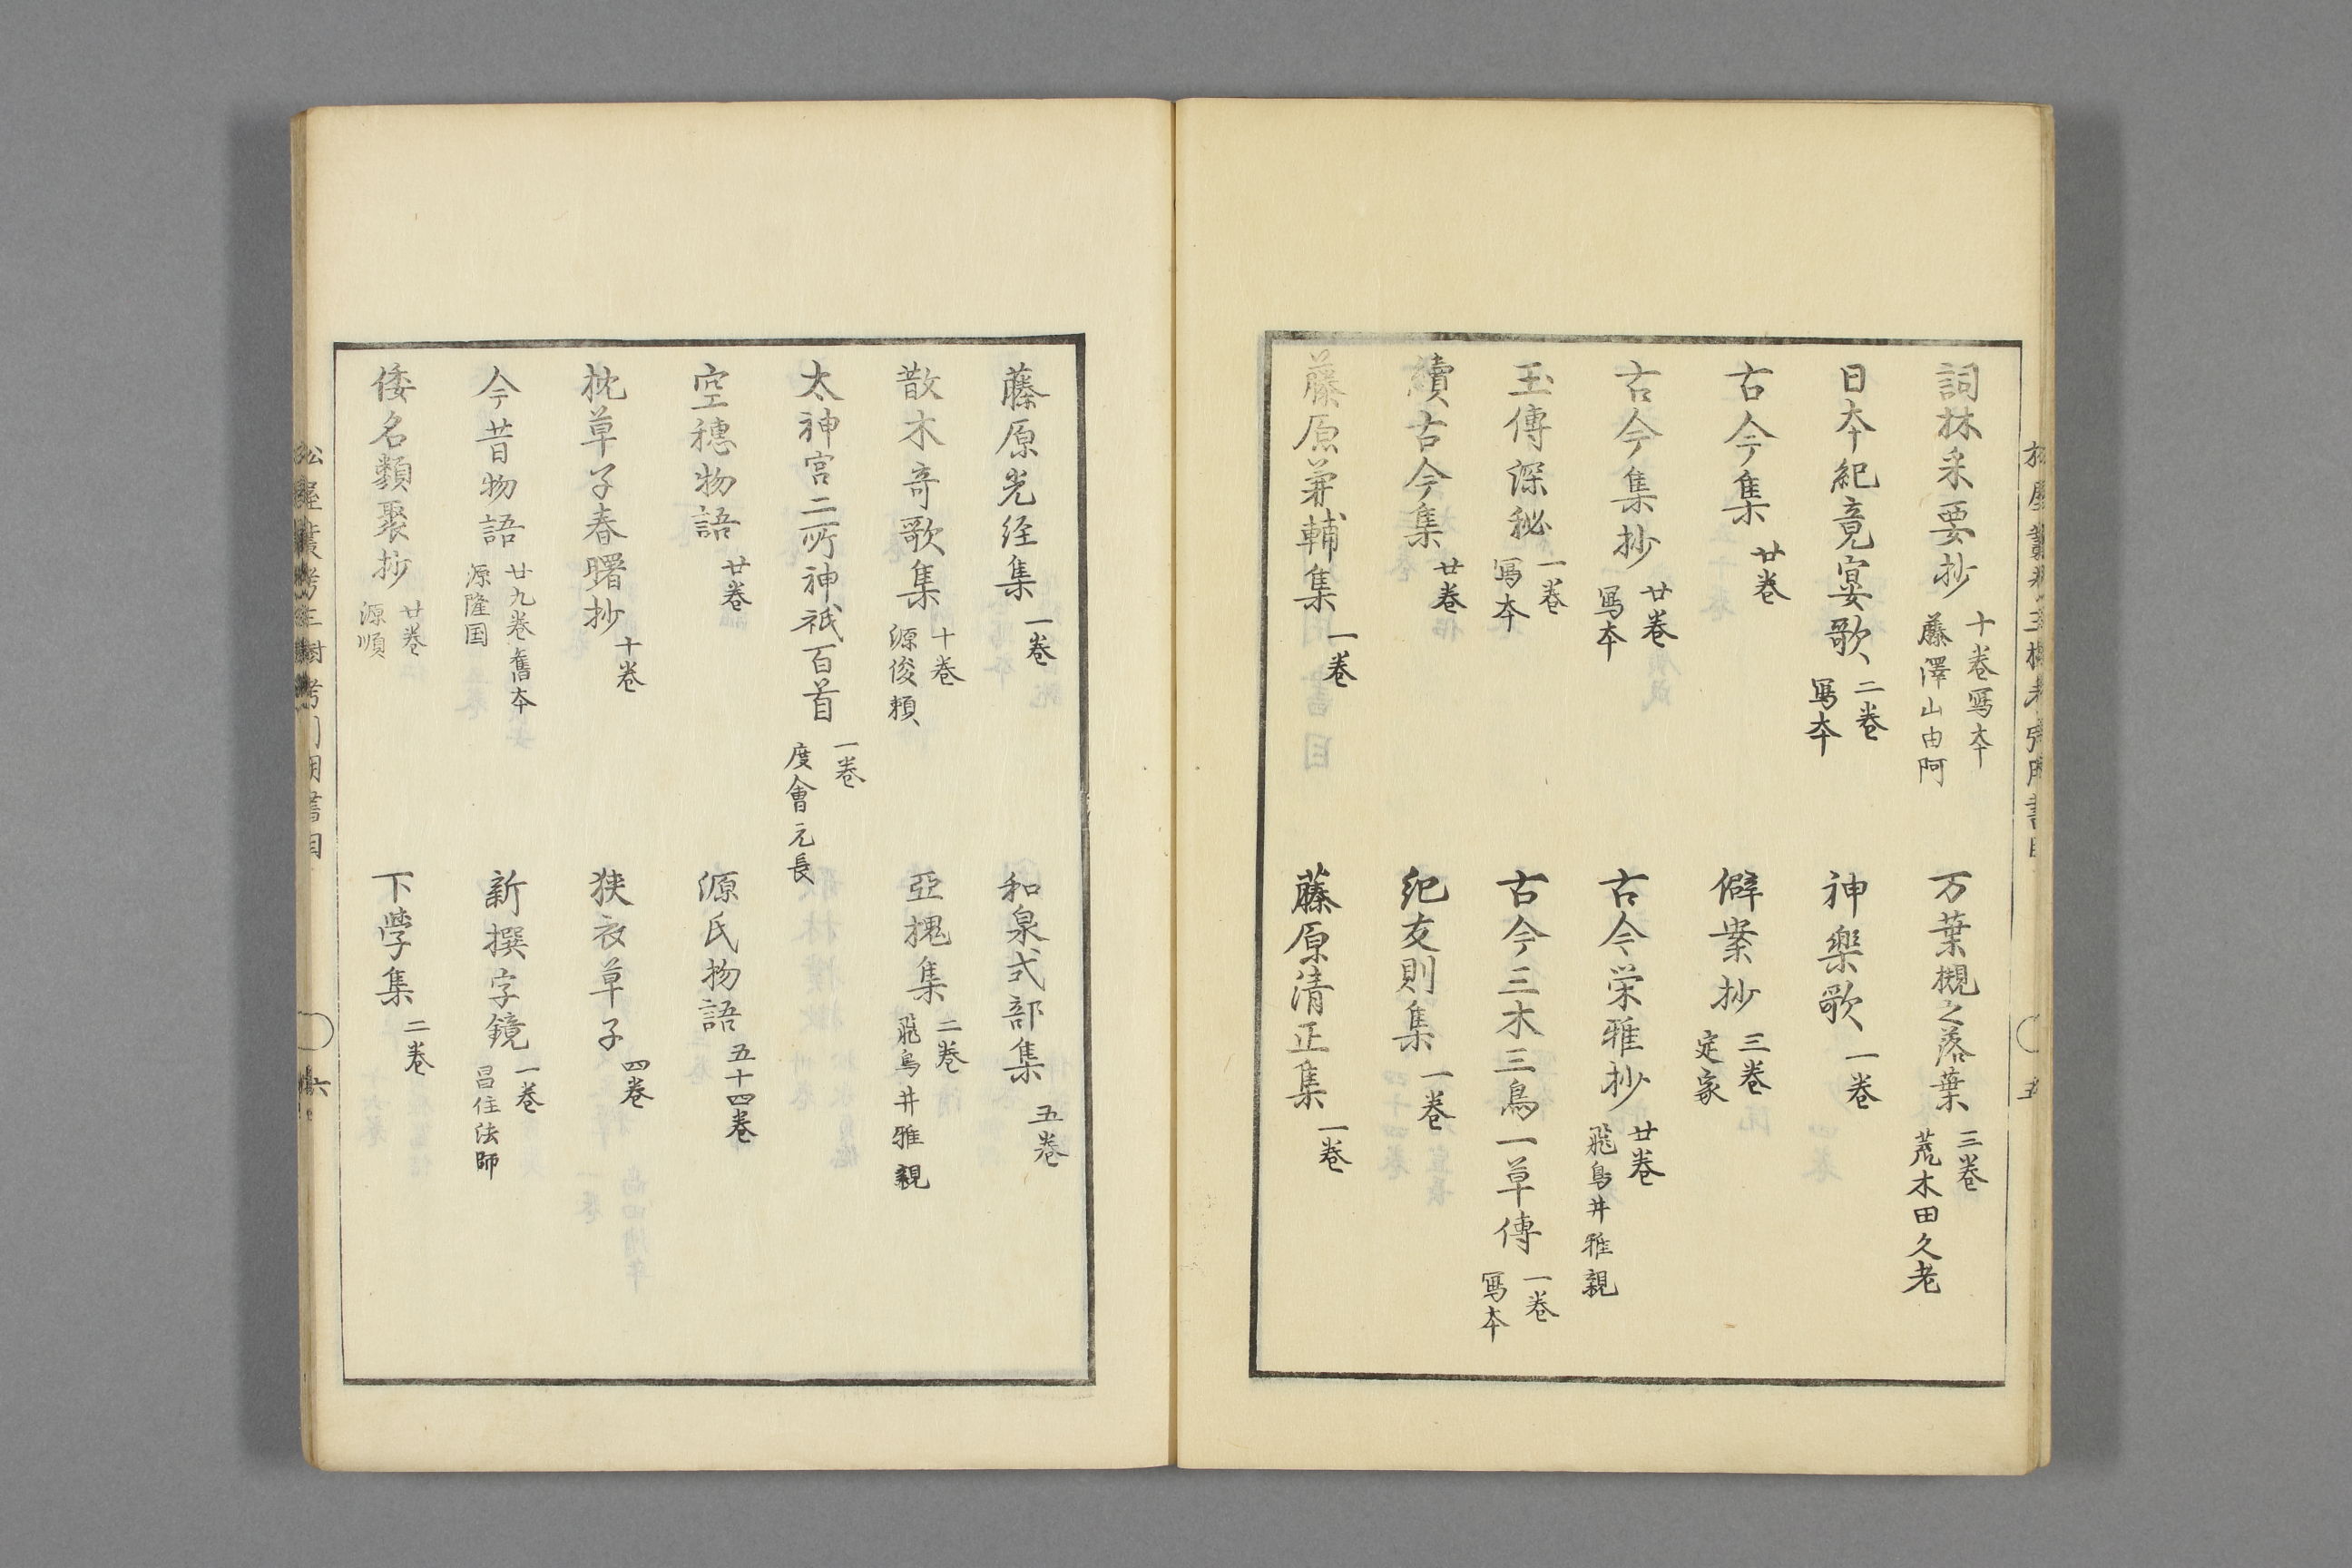 詞林采要抄 十卷寫本 藤澤山由阿
万葉槻之落葉 三卷 荒木田久老
日本紀竟宴歌 二卷 寫本
神樂歌 一卷
古今集 廿卷
僻案抄 三卷 定家
古今集抄 廿卷 寫本
古今栄雅抄 廿卷 飛鳥井雅親
玉傳深秘 一卷 寫本
古今三木三鳥一草傳 一卷 寫本
續古今集 廿卷
紀友則集 一卷
藤原兼輔集 一卷
藤原清正集 一卷
藤原光経集 一卷
和泉式部集 五卷
散木奇歌集 十卷 源俊頼
亞槐集 二卷 飛鳥井雅親
太神宮二所神祇百首 一卷 度會元長
空穗物語 廿卷
源氏物語 五十四卷
枕草子春曙抄 十卷
狭衣草子 四卷
今昔物語 廿九卷舊本 源隆国
新撰字鏡 一卷 昌住法師
倭名類聚抄 廿卷 源順
下學集 二卷
六